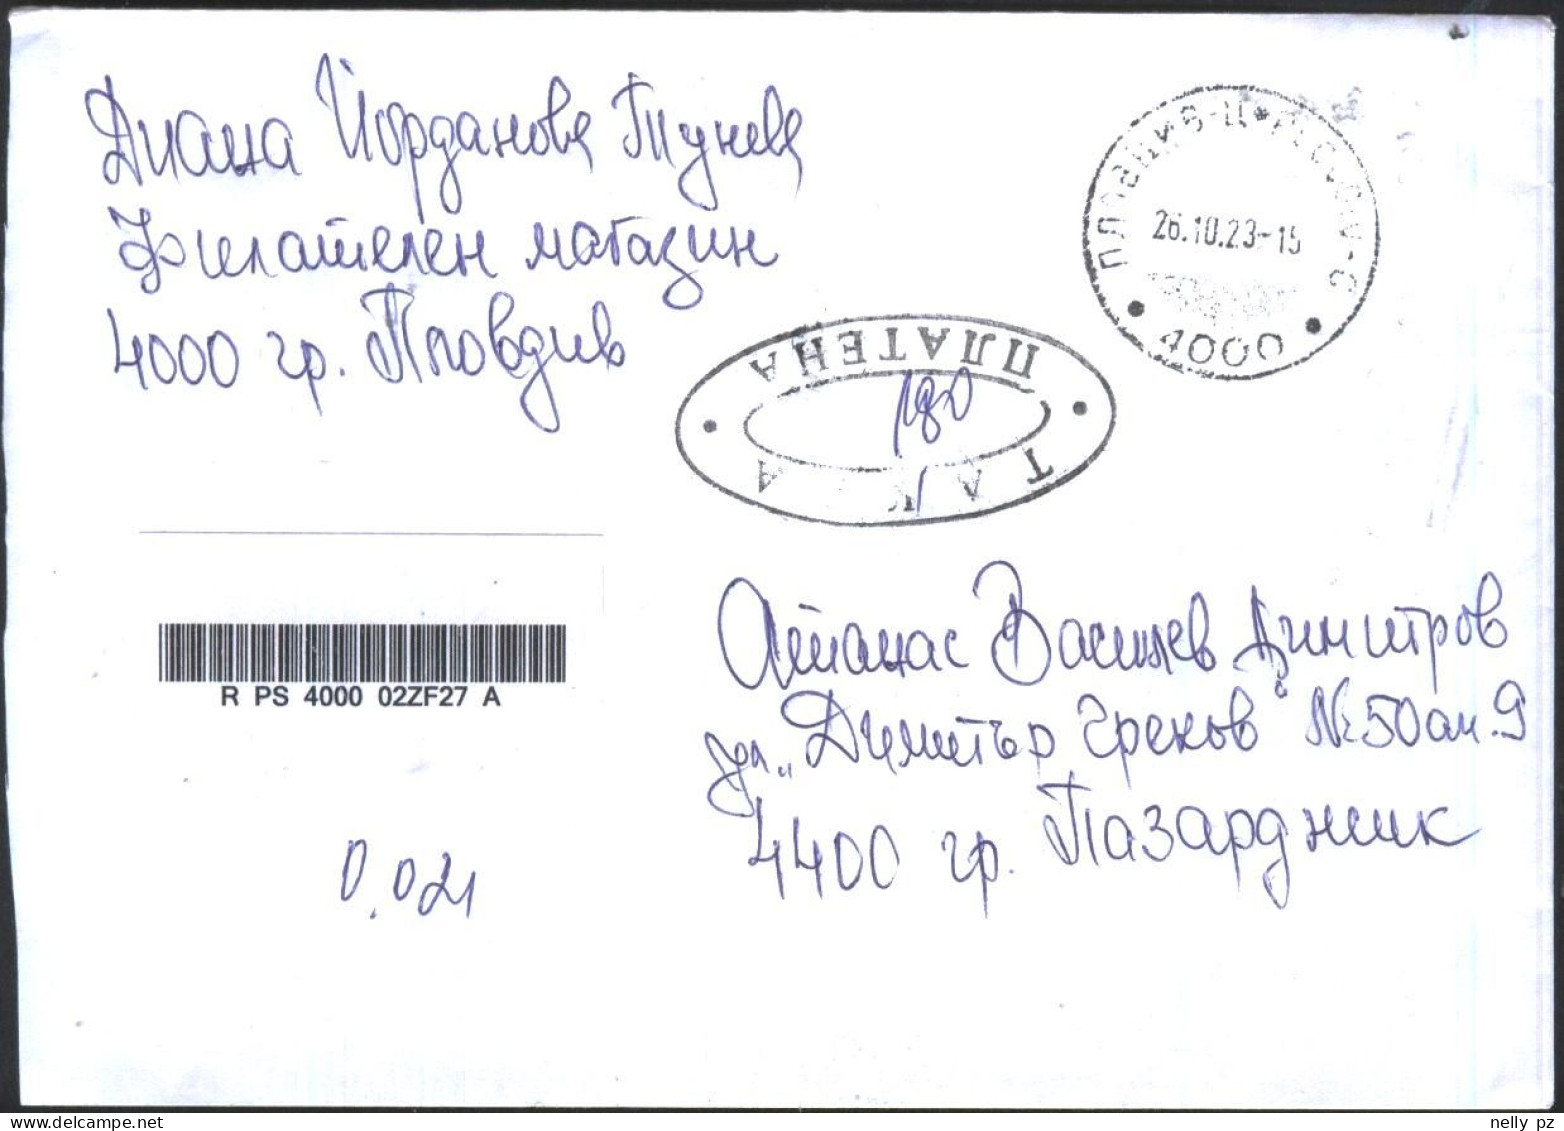 Диана Йорданова Тунева
Филателен магазин
4000 гр. Пловдив
26.10.23-15
4000
ПЛАТЕНА
1,80
ТАКСА
R PS 4000 02ZF27 A
0.021
Атанас Василев Димитров
ул. „Димитър Греков" № 50 ап. 9
4400 гр. Пазарджик
nelly pz